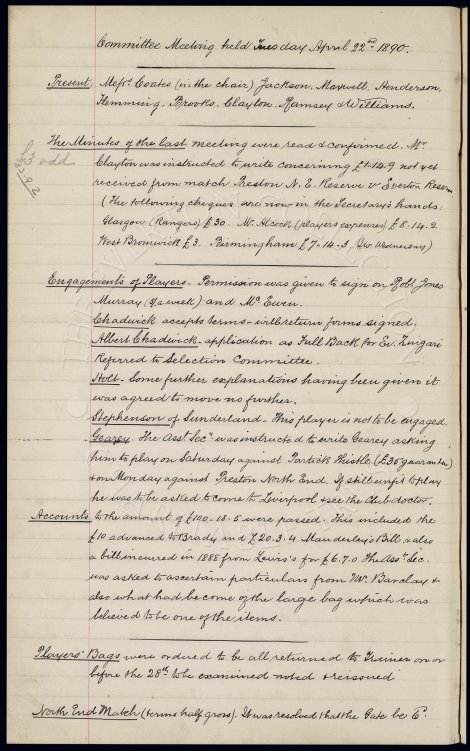 Committee Meeting held Tuesday April 22nd 1890.
Present: Messrs. Coates (in the chair) Jackson, Maxwell, Henderson,
Flemming, Brooks, Clayton, Ramsey & Williams.
The Minutes of the last meeting were read & confirmed. Mr
Clayton was instructed to write concerning £1-14-9 not yet
received from match Preston N. E. Reserve v Everton Reserve
(The following cheques are now in the Secretary's hands:
Glasgow (Rangers) £30. Mr Alcock (players expenses) £8-14-2
West Bromwick £3. Birmingham £7-14-3 (Wednesday)
£3 odd
Engagements of Players - Permission was given to sign on Robt. Jones
Murray, and Mc Ewen.
Chadwick accepts terms - will return forms signed.
Albert Chadwick - application as Full Back for Ev. Zingari
Referred to Selection Committee.
Holt - Some further explanations having been given it
was agreed to move no further.
Stephenson of Sunderland - This player is not to be engaged.
Gearey The Asst Secy was instructed to write Gearey asking
him to play on Saturday against Partick Thistle (£35 guarantee)
& on Monday against Preston North End. If still unfit to play
he was to be asked to come to Liverpool & see the Club doctor.
Accounts to the amount of £100-13-5 were passed - This included the
£10 advanced to Brady and £20.3.4 Manderley's Bill & also
a bill incurred in 1888 from Lewis's for £6.7.0 The Asst Sec.
was asked to ascertain particulars from Mr. Barclay &
also what had become of the large bag which was
believed to be one of the items.
Players' Bags were ordered to be all returned to Trainer on or
before the 28th to be examined noted & reissued
North End Match (terms half gross). It was resolved that the Gate be 6d.